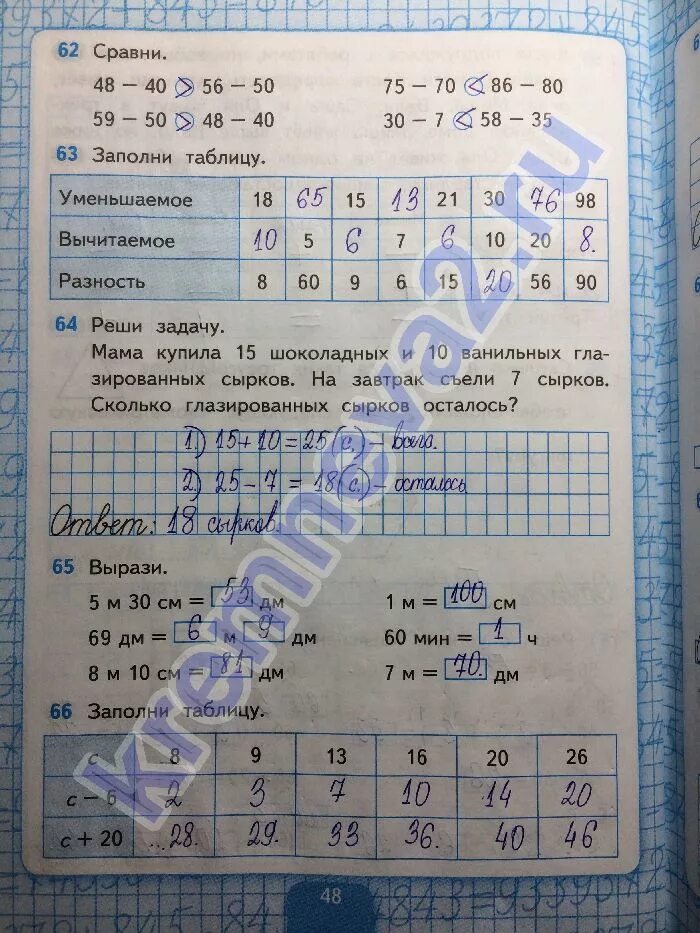 62 Сравни.
48 − 40 > 56 − 50 75 − 70 < 86 − 80
59 − 50 > 48 − 40 30 − 7 < 58 − 35
63 Заполни таблицу.
Уменьшаемое 18 65 15 13 21 30 76 98
Вычитаемое 10 5 6 7 6 10 20 8.
Разность 8 60 9 6 15 20 56 90
64 Реши задачу.
Мама купила 15 шоколадных и 10 ванильных гла-
зированных сырков. На завтрак съели 7 сырков.
Сколько глазированных сырков осталось?
1) 15+10=25(с.) – всего.
2) 25−7 = 18(с.) – осталось
Ответ: 18 сырков.
65 Вырази.
5 м 30 см = 53 дм 1 м = 100 см
69 дм = 6 м 9 дм 60 мин = 1 ч
8 м 10 см = 81 дм 7 м = 70. дм
66 Заполни таблицу.
с 8 9 13 16 20 26
с − 6 2 3 7 10 14 20
с + 20 28. 29. 33 36. 40 46
48
kremneva2.ru